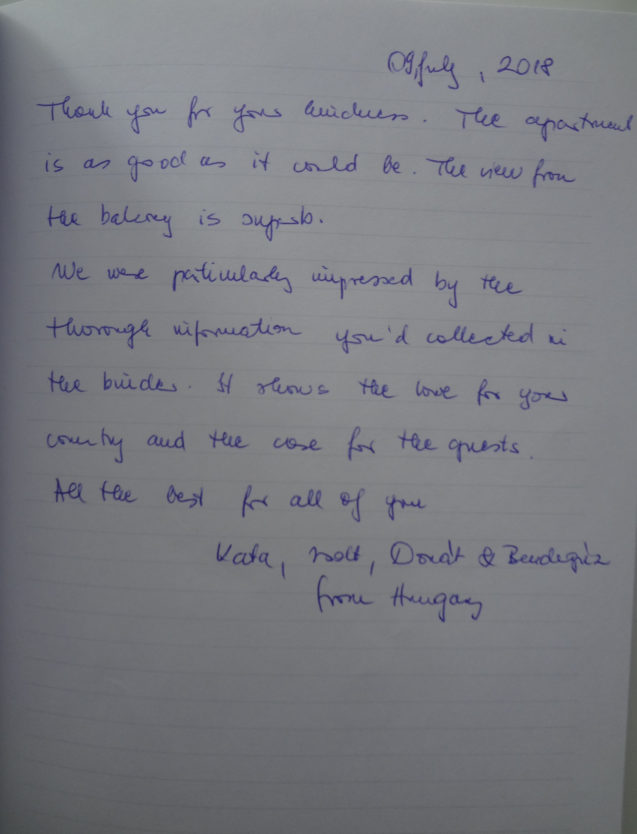 09,July, 2018
Thank you for your kindness. The apartment
is as good as it could be. The view from
the balcony is superb.
We were particularly impressed by the
thorough information you'd collected in
the binder. It shows the love for your
country and the care for the guests.
All the best for all of you
Kata, Zsolt, Donát & Bendegúz
from Hungary